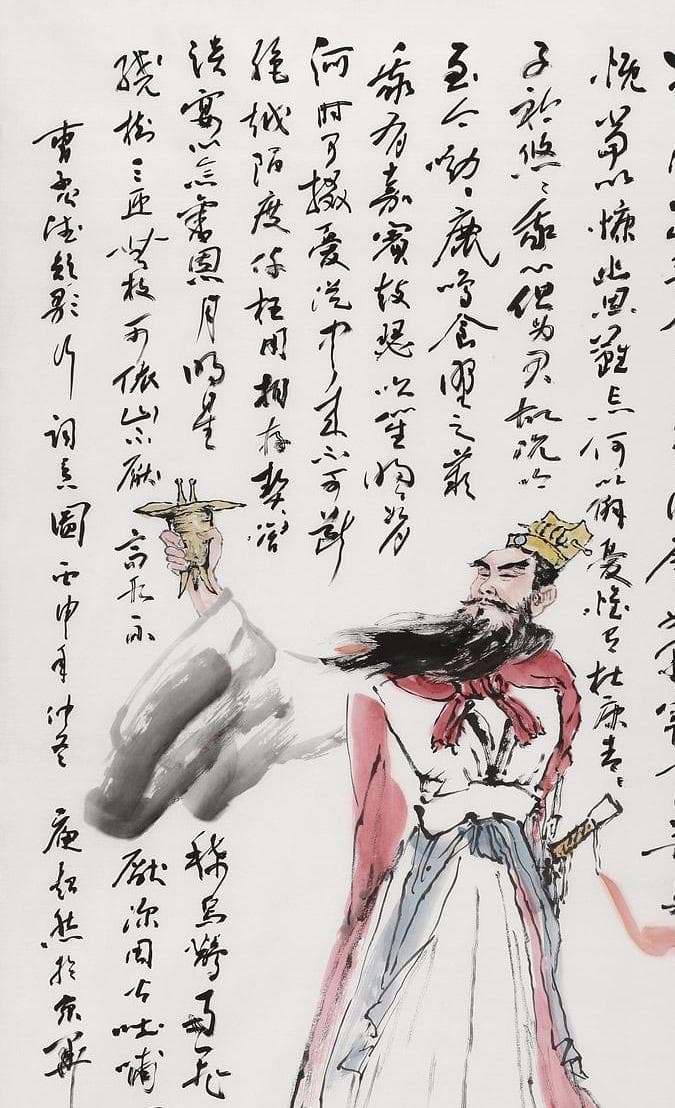 慨當以慷幽思難忘何以解憂惟有杜康青々
子衿悠々我心但为君故沉吟
至今呦々鹿鸣食野之苹
我有嘉賓鼓瑟吹笙明々如月
何时可掇憂從中来不可断
絕越陌度阡枉用相存契阔
談宴心念舊恩月明星稀烏鵲南飛
绕樹三匝無枝可依山不厭高水不厭深周公吐哺
曹孟德短歌行詞意圖丙申年仲冬超然於京華